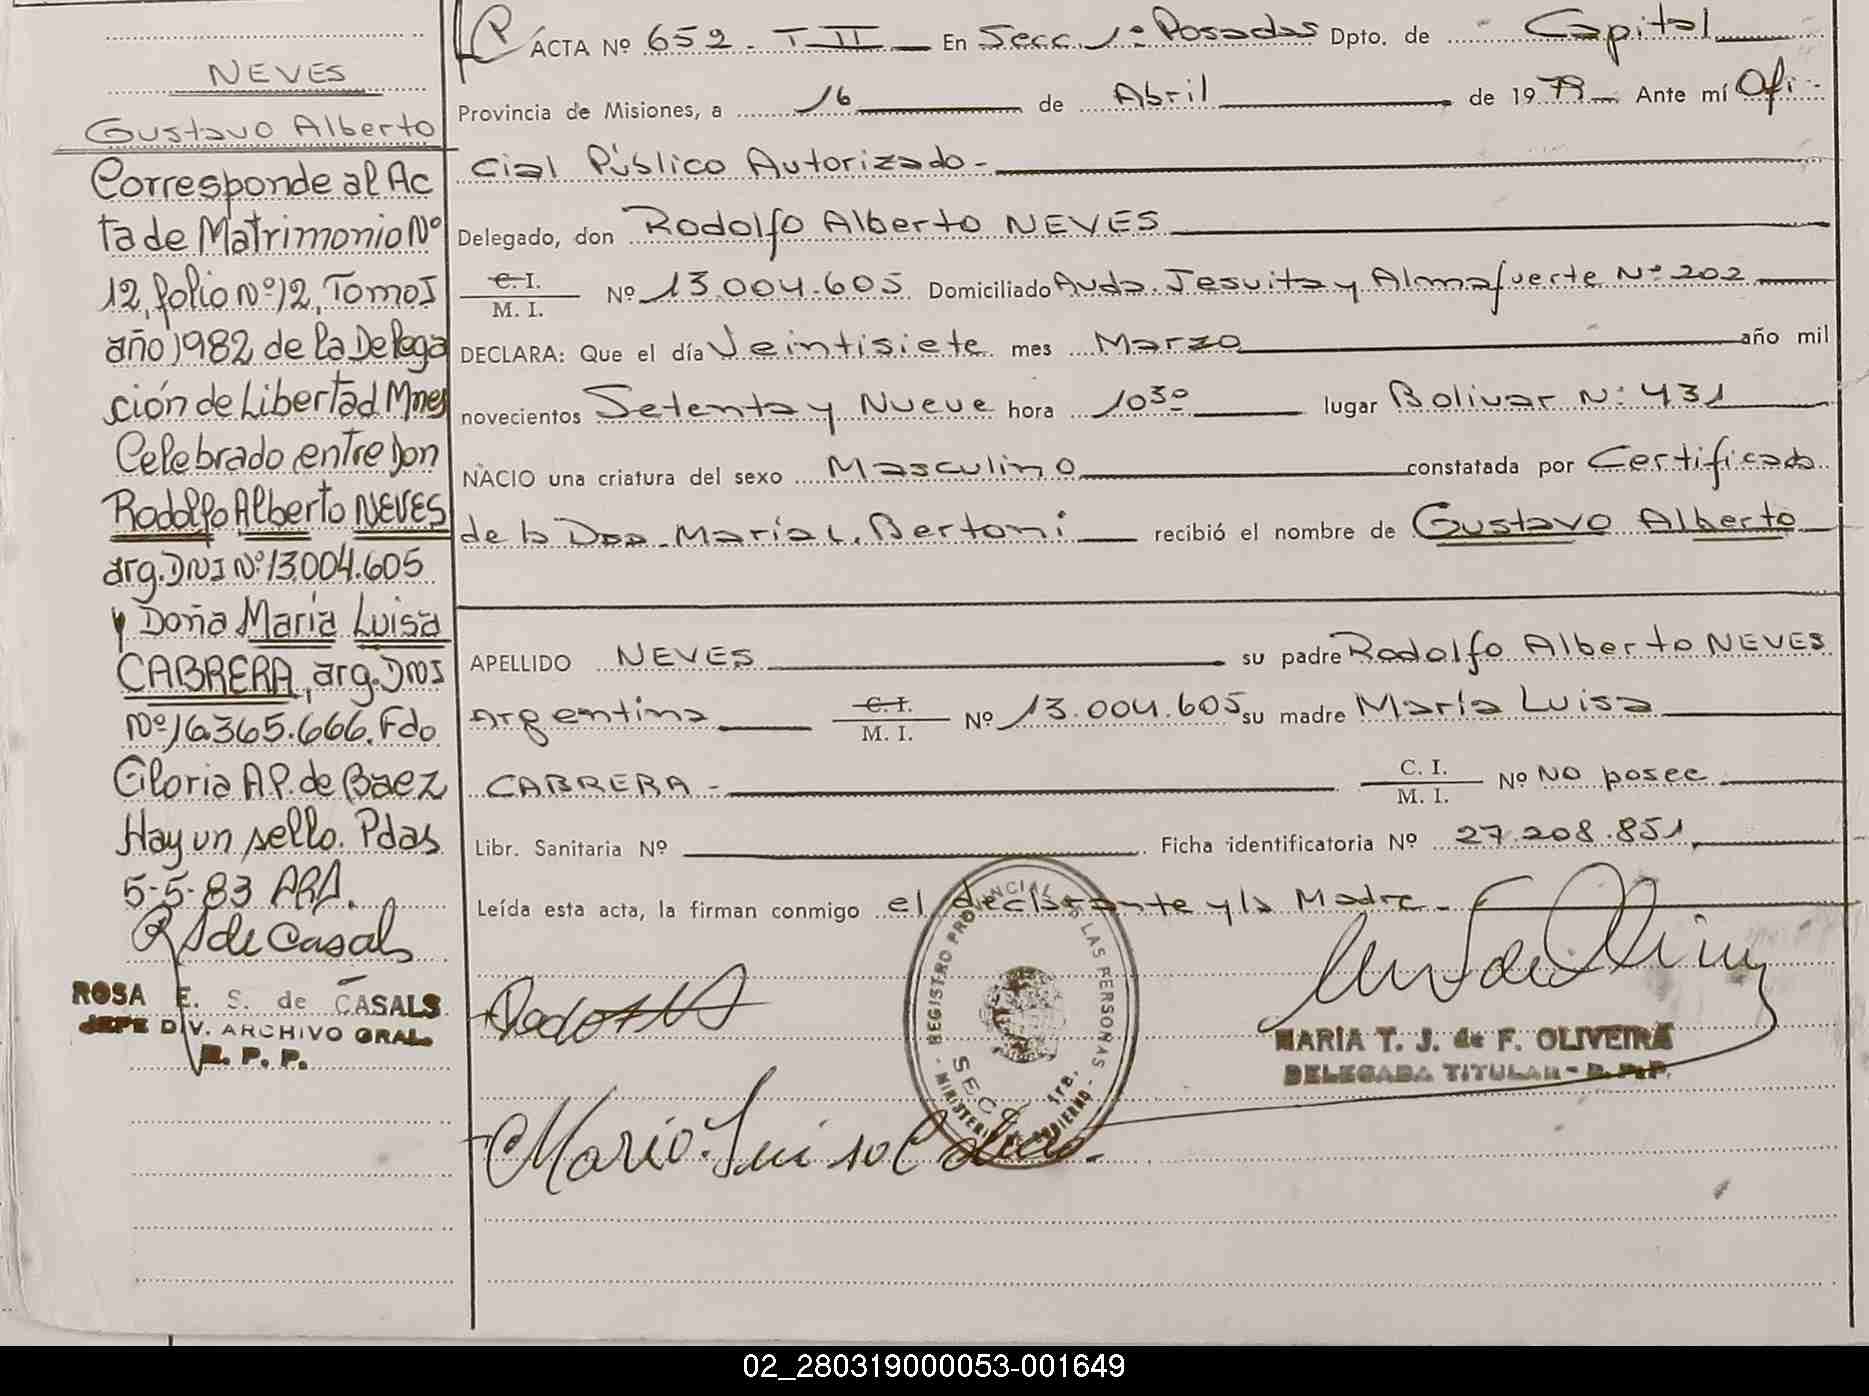 NEVES
Gustavo Alberto
Corresponde al Ac
ta de Matrimonio Nº
12, folio Nº 12, Tomo I
año 1982 de la Delega
ción de Libertad Mnes
Celebrado entre Don
Rodolfo Alberto NEVES
arg. DNI Nº 13.004.605
y Doña María Luisa
CABRERA, arg. DNI
Nº 16.365.666. Fdo
Gloria A P. de Baez
Hay un sello. Pdas
5-5-83 ARA.
RS de Casals
ROSA E. S. de CASALS
JEFE DIV. ARCHIVO GRAL.
R. P. P.
ACTA Nº 652 - T II En Secc. 1º Posadas Dpto. de Capital
Provincia de Misiones, a 16 de Abril de 1979 Ante mí Ofi-
cial Público Autorizado -
Delegado, don Rodolfo Alberto NEVES
C. I. / M. I. Nº 13.004.605 Domiciliado Avda. Jesuita y Almafuerte Nº 202
DECLARA: Que el día Veintisiete mes Marzo año mil
novecientos Setenta y Nueve hora 10³⁰ lugar Bolivar Nº 431
NACIO una criatura del sexo Masculino constatada por Certificado
de la Dra. María L. Bertoni recibió el nombre de Gustavo Alberto
APELLIDO NEVES su padre Rodolfo Alberto NEVES
Argentina C. I. / M. I. Nº 13.004.605 su madre María Luisa
CABRERA - C. I. / M. I. Nº No posee
Libr. Sanitaria Nº Ficha identificatoria Nº 27.208.851
Leída esta acta, la firman conmigo el declarante y la Madre -
REGISTRO PROVINCIAL DE LAS PERSONAS
SECC. 1ra.
- MINISTERIO DE GOBIERNO -
MARIA T. J. de F. OLIVEIRA
DELEGADA TITULAR - R. P. P.
María Luisa
02_280319000053-001649